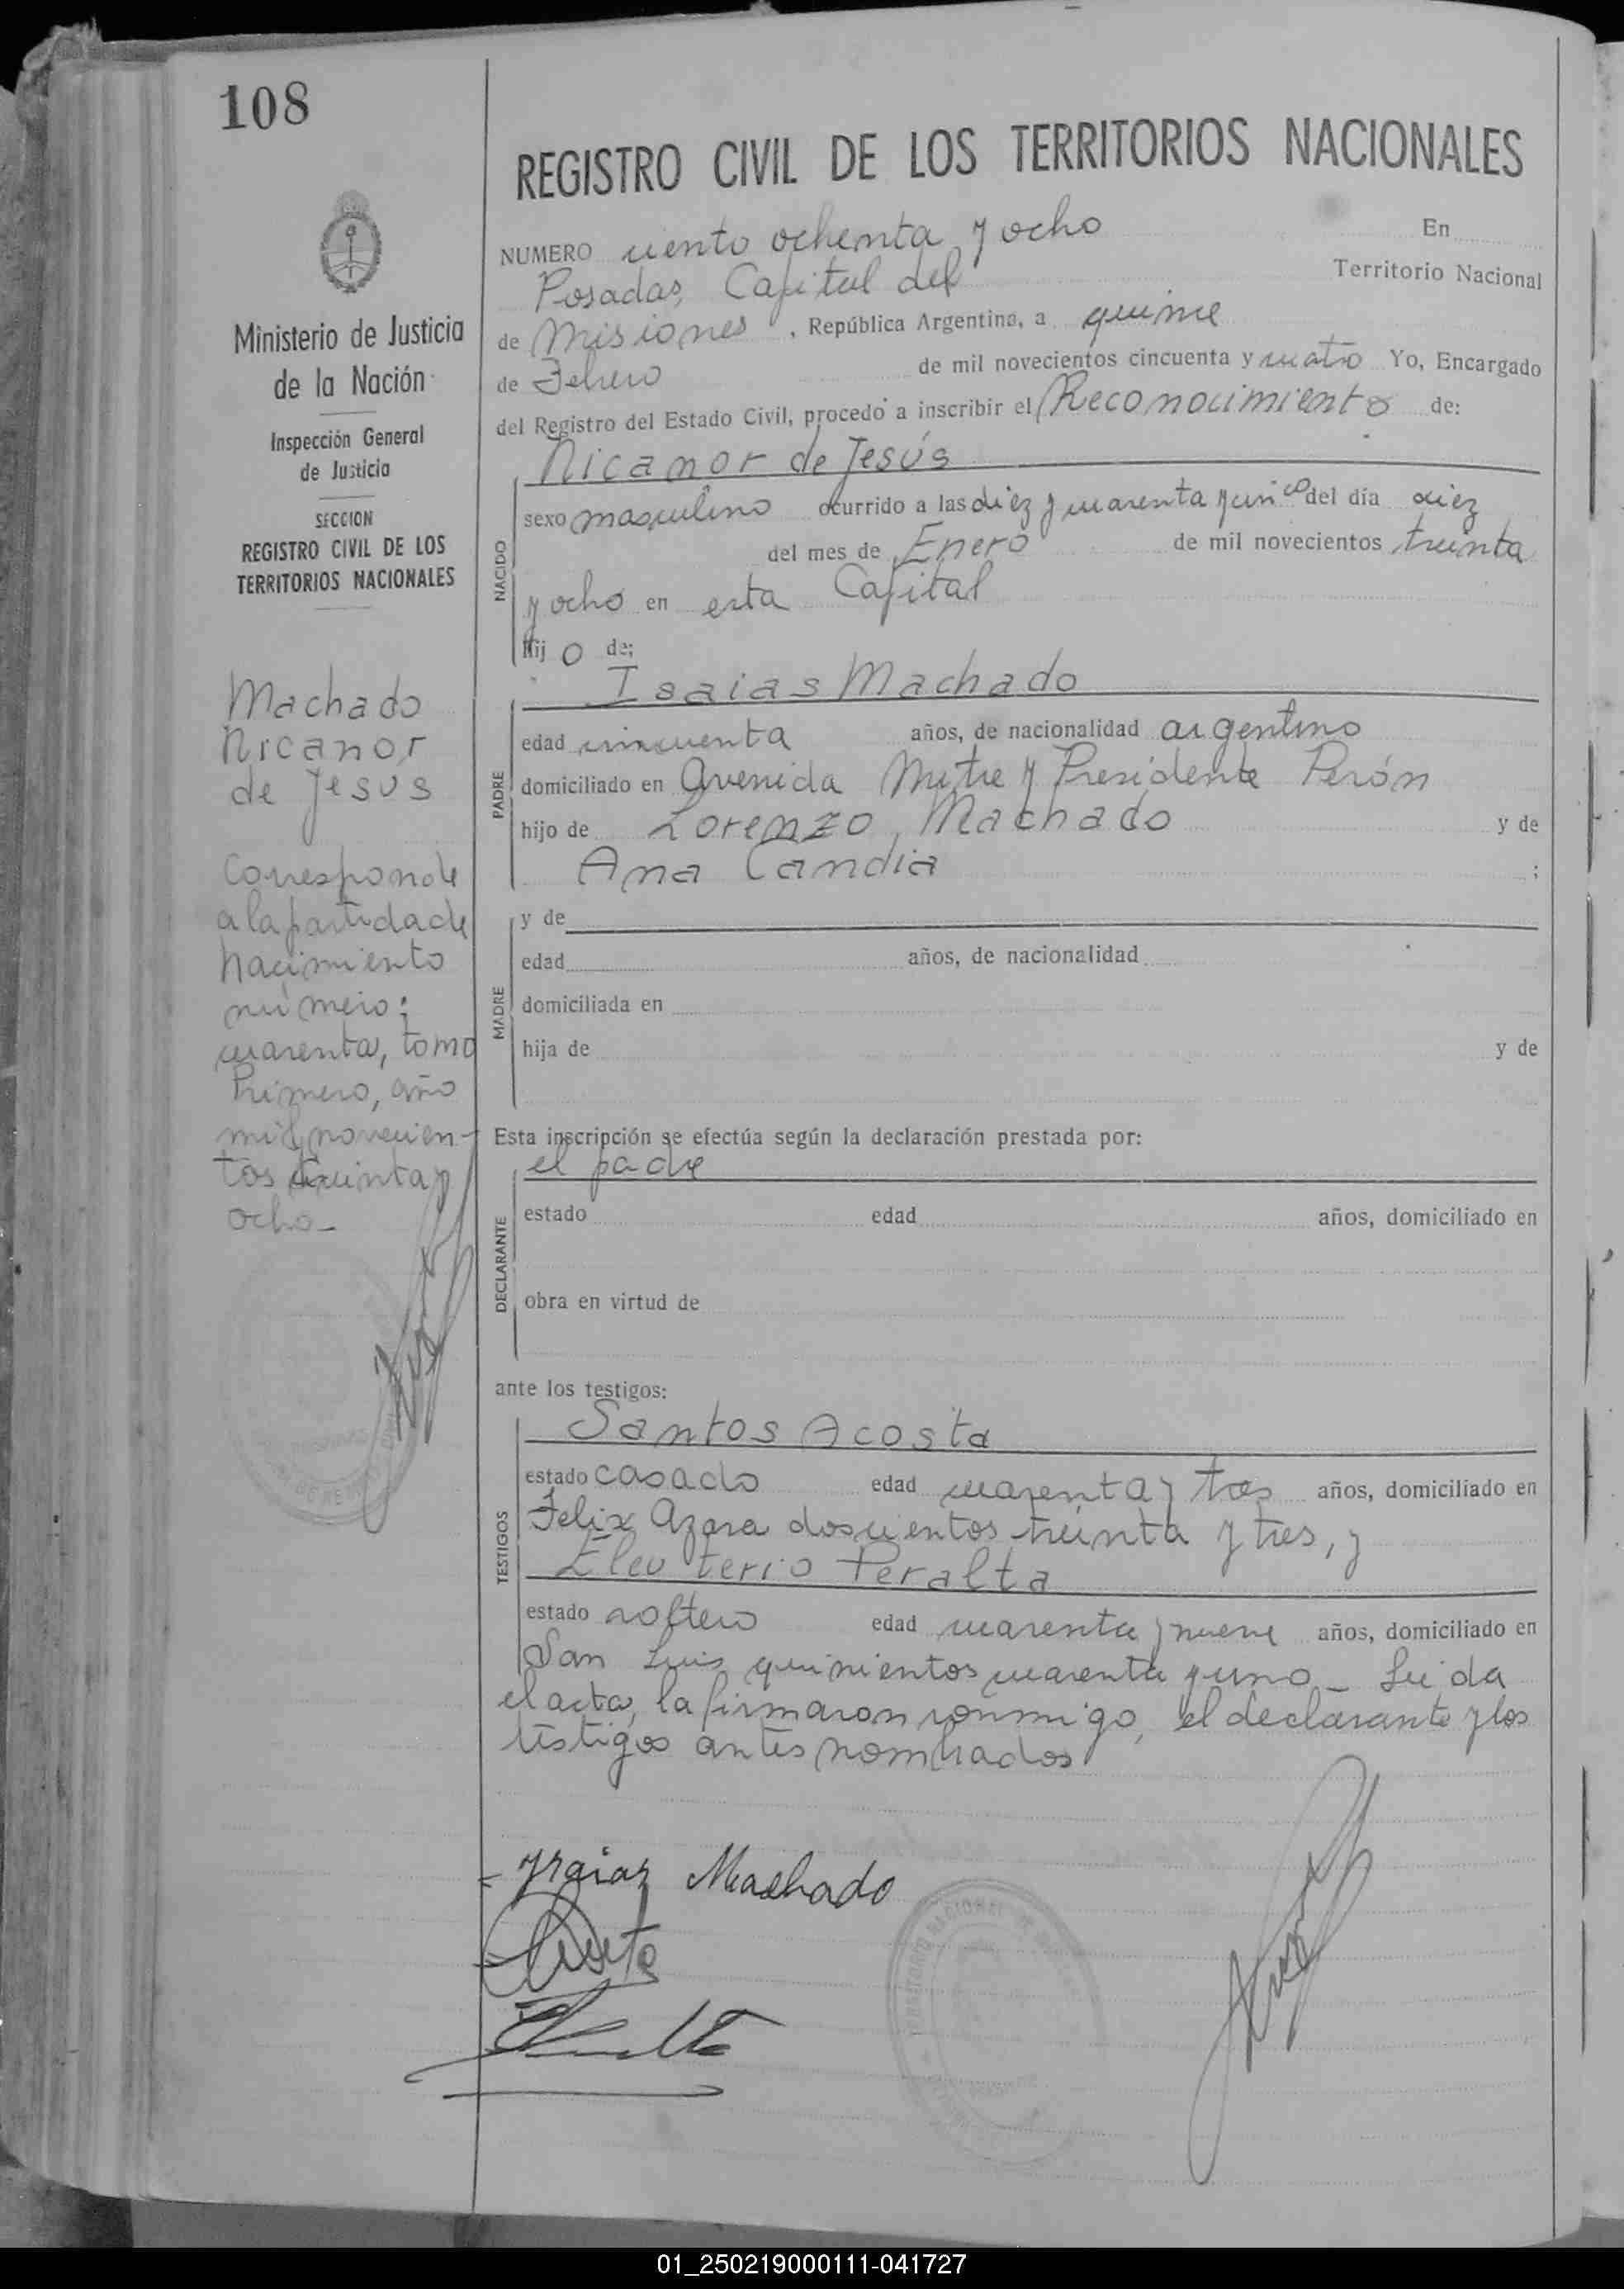 108
Ministerio de Justicia
de la Nación
Inspección General
de Justicia
SECCION
REGISTRO CIVIL DE LOS
TERRITORIOS NACIONALES
Machado
Nicanor
de Jesus
Corresponde
a la partida de
nacimiento
número:
cuarenta, tomo
Primero, año
mil novecien-
tos treinta y
ocho-
REGISTRO CIVIL DE LOS TERRITORIOS NACIONALES
NUMERO ciento ochenta y ocho En
Posadas, Capital del Territorio Nacional
de Misiones, República Argentina, a quince
de Febrero de mil novecientos cincuenta y cuatro Yo, Encargado
del Registro del Estado Civil, procedo a inscribir el Reconocimiento de:
Nicanor de Jesús
NACIDO
sexo masculino ocurrido a las diez y cuarenta y cinco del día diez
del mes de Enero de mil novecientos treinta
y ocho en esta Capital
hij o de:
Isaias Machado
PADRE
edad cincuenta años, de nacionalidad argentino
domiciliado en Avenida Mitre y Presidente Perón
hijo de Lorenzo Machado y de
Ana Candia ;
MADRE
y de
edad años, de nacionalidad
domiciliada en
hija de y de
Esta inscripción se efectúa según la declaración prestada por:
el padre
DECLARANTE
estado edad años, domiciliado en
obra en virtud de
ante los testigos:
Santos Acosta
TESTIGOS
estado casado edad cuarenta y tres años, domiciliado en
Felix Azara doscientos treinta y tres, y
Eleuterio Peralta
estado soltero edad cuarenta y nueve años, domiciliado en
San Luis quinientos cuarenta y uno - Leida
el acta, la firmaron conmigo, el declarante y los
testigos antes nombrados
Ysaias Machado
TERRITORIO NACIONAL DE
01_250219000111-041727